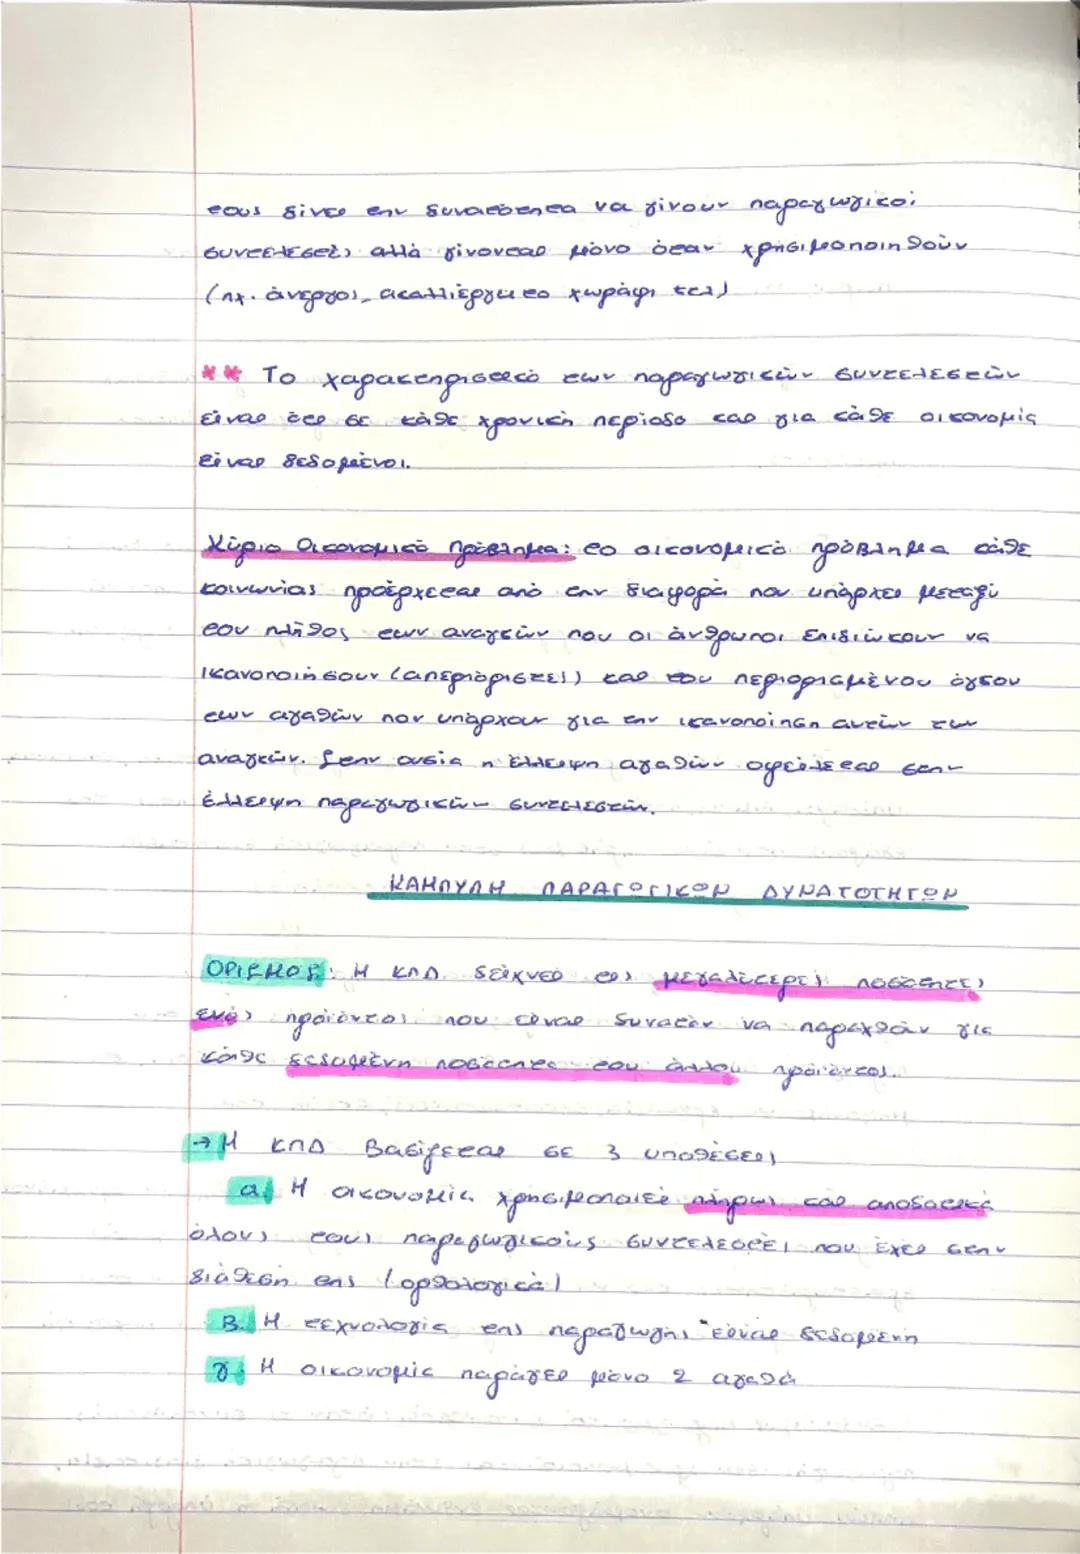 τους δίνει την δυνατότητα να γίνουν παραγωγικοί
συντελεστές αλλά γίνονται μόνο όταν χρησιμοποιηθούν
(πχ. άνεργοι, ακαλλιέργητο χωράφι κτλ)
** Το χαρακτηριστικό των παραγωγικών συντελεστών
είναι ότι σε κάθε χρονική περίοδο και για κάθε οικονομία
είναι δεδομένοι.
Κύριο Οικονομικό πρόβλημα: το οικονομικό πρόβλημα κάθε
κοινωνίας προέρχεται από την διαφορά που υπάρχει μεταξύ
του πλήθος των αναγκών που οι άνθρωποι επιδιώκουν να
ικανοποιήσουν (απεριόριστες) και του περιορισμένου όγκου
των αγαθών που υπάρχουν για την ικανοποίηση αυτών των
αναγκών. Στην ουσία η έλλειψη αγαθών οφείλεται στην
έλλειψη παραγωγικών συντελεστών.
ΚΑΜΠΥΛΗ ΠΑΡΑΓΩΓΙΚΩΝ ΔΥΝΑΤΟΤΗΤΩΝ
ΟΡΙΣΜΟΣ: Η ΚΠΔ δείχνει τις μεγαλύτερες ποσότητες
ενός προϊόντος που είναι δυνατόν να παραχθούν για
κάθε δεδομένη ποσότητα του άλλου προϊόντος.
→ Η ΚΠΔ Βασίζεται σε 3 υποθέσεις
α. Η οικονομία χρησιμοποιεί πλήρως και αποδοτικά
όλους τους παραγωγικούς συντελεστές που έχει στην
διάθεση της (ορθολογικά)
Β. Η τεχνολογία της παραγωγής είναι δεδομένη
γ. Η οικονομία παράγει μόνο 2 αγαθά